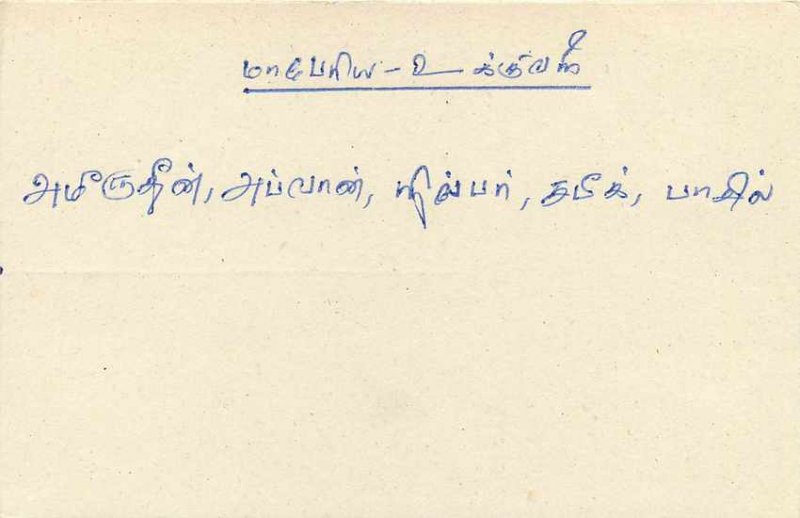 மாபேரிய - உக்குவளை
அமீருதீன், அப்வான், ஷில்பர், தமீக், பாசில்